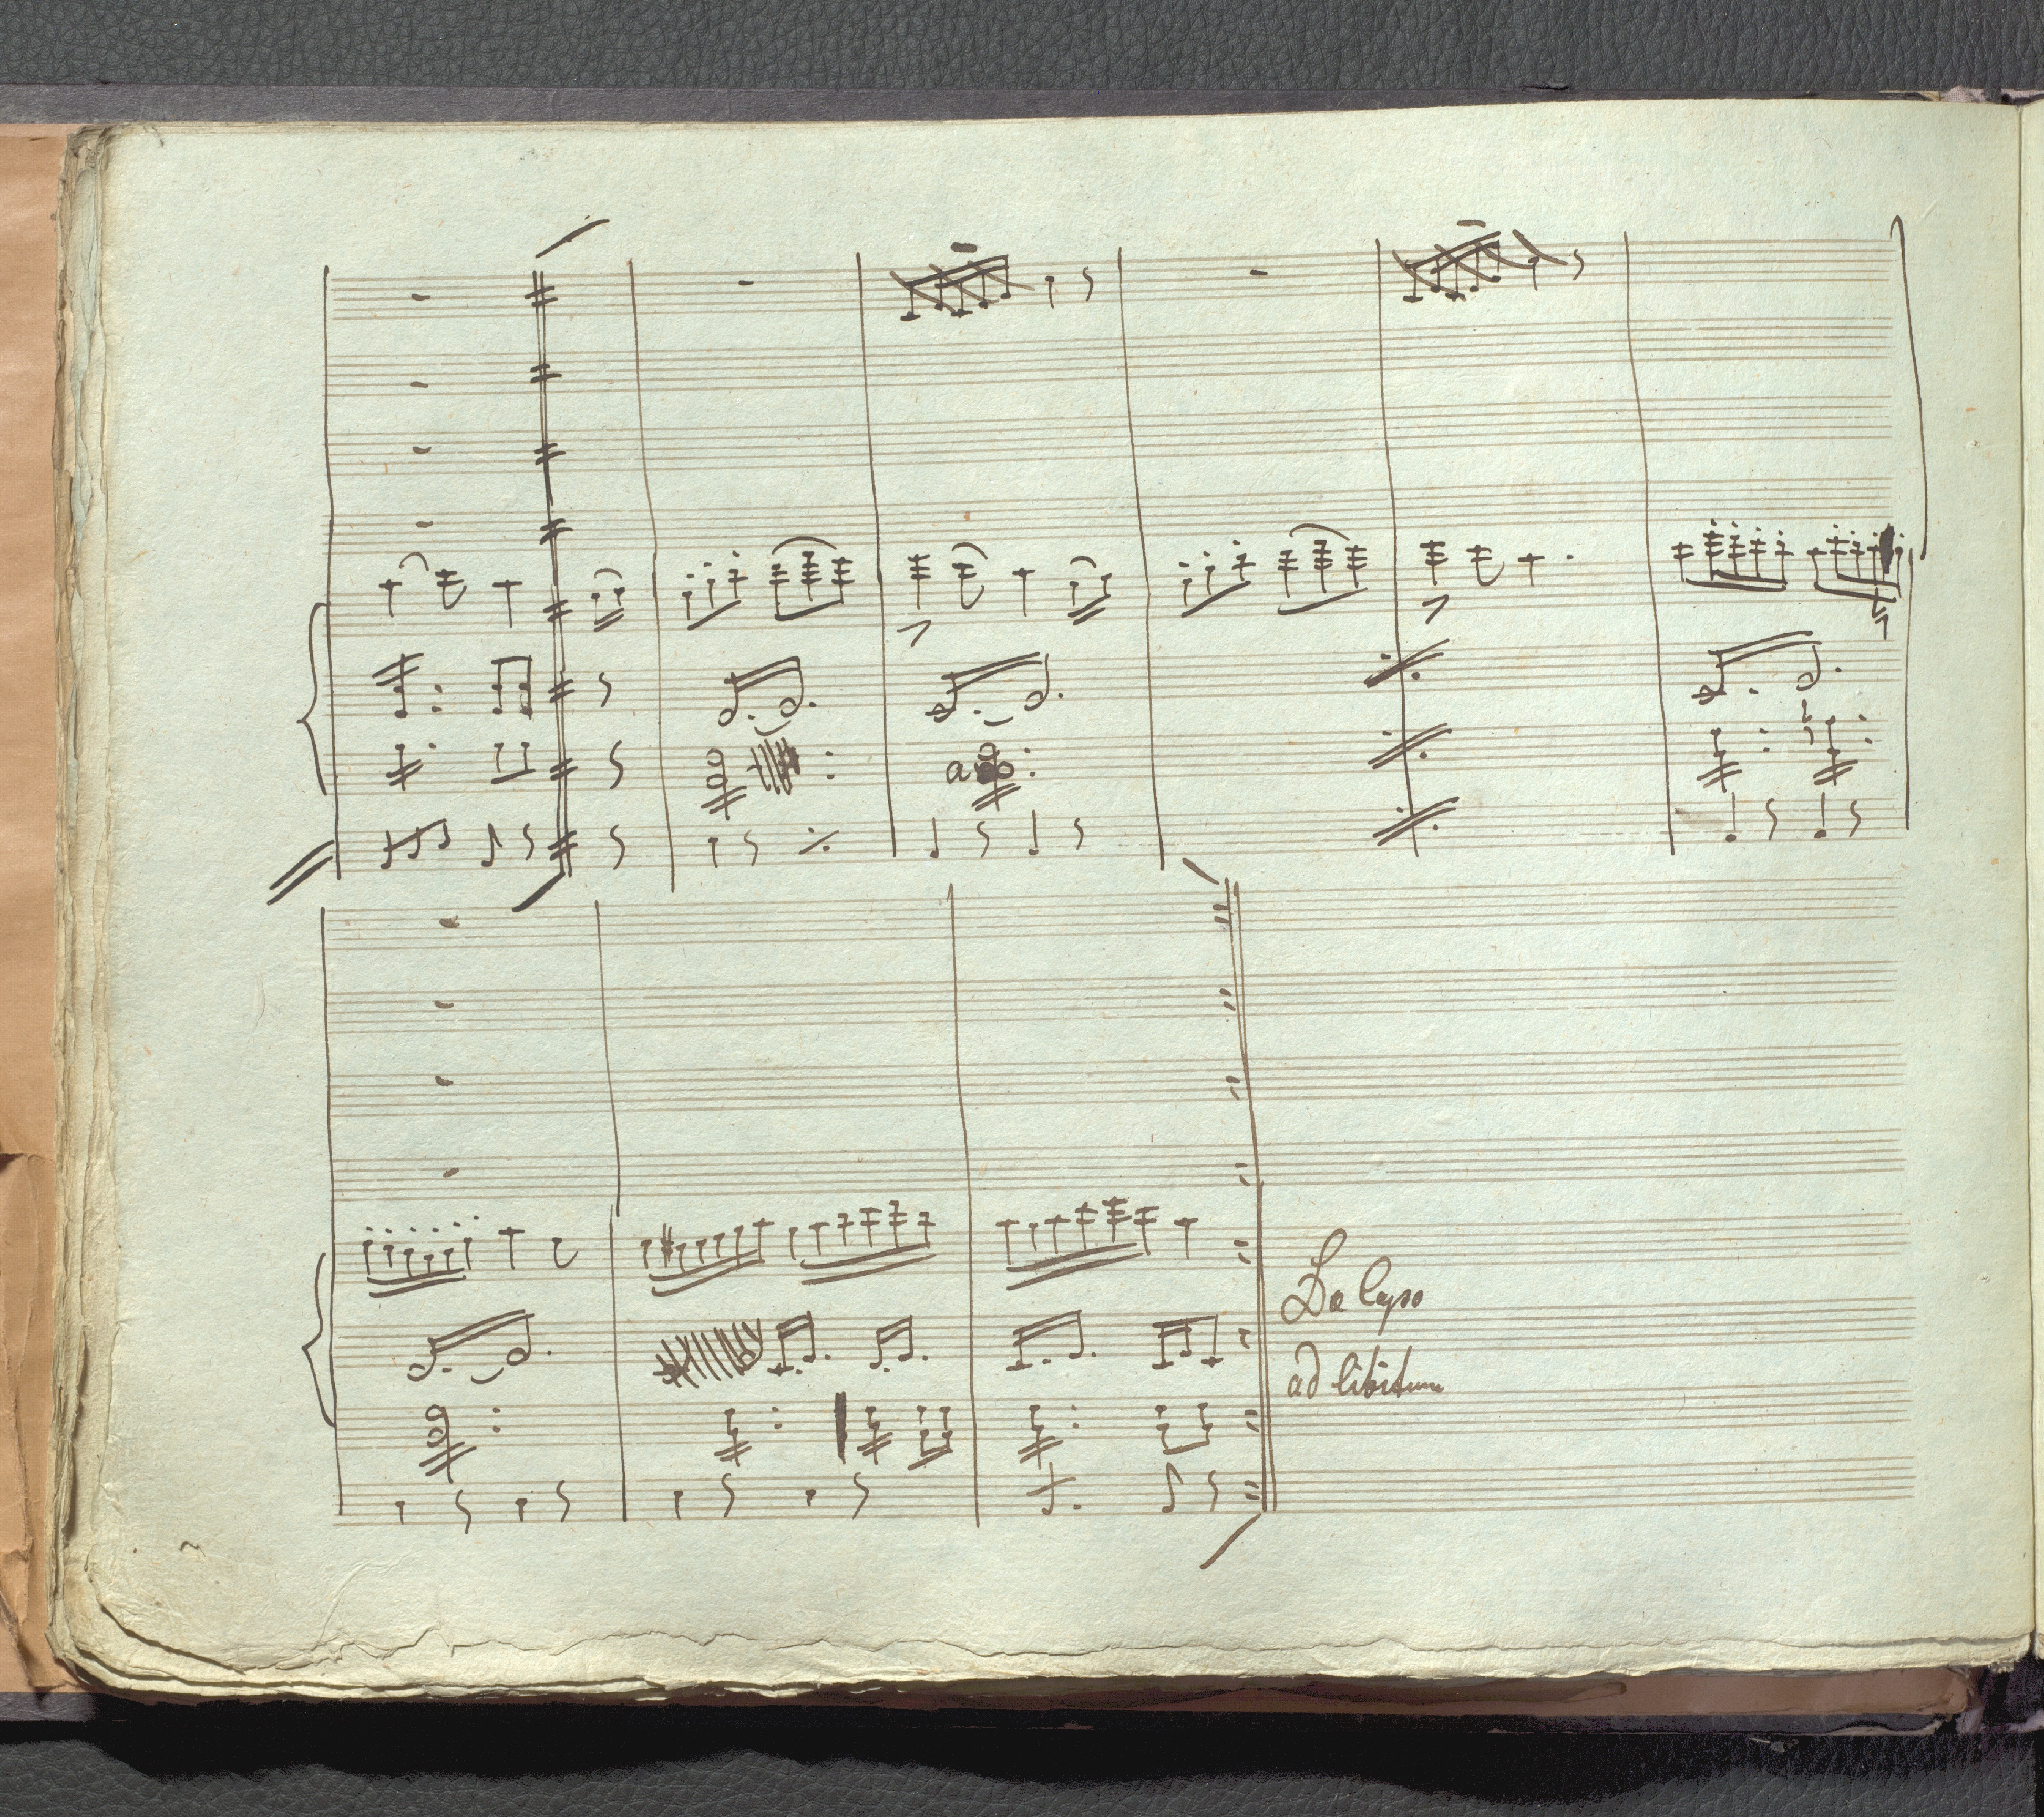 Da Capo
ad libitum